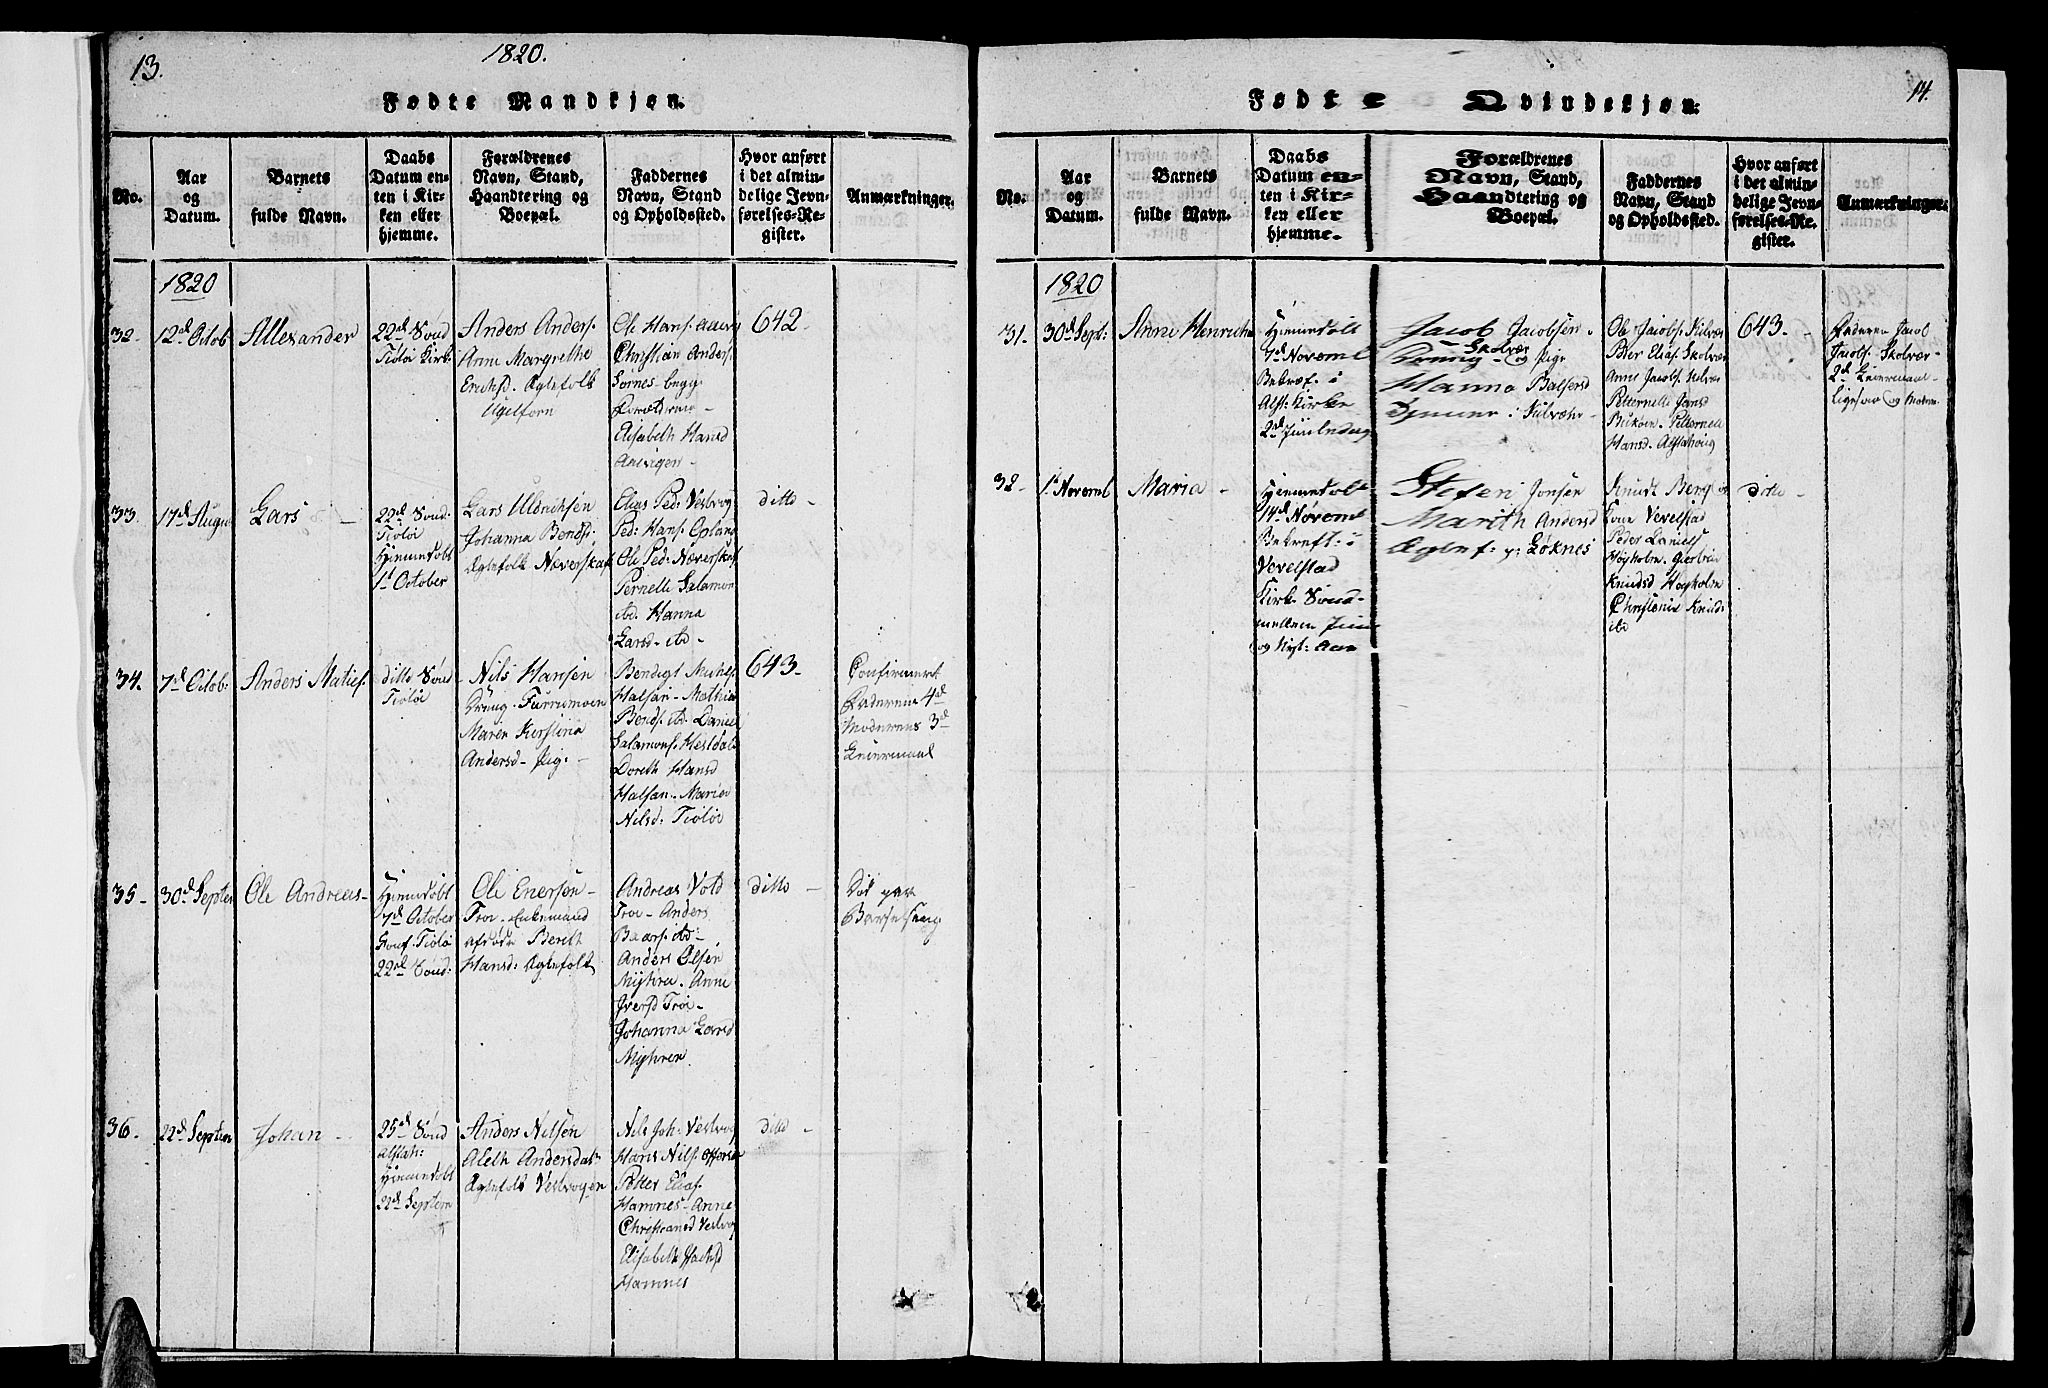 13.
1820.
Fødte Mandkjøn.
No.
Aar
og
Datum.
Barnets
fulde Navn.
Daabs
Datum en-
ten i Kir-
ken eller
hjemme.
Forældrenes
Navn, Stand,
Haandtering og
Boepæl.
Faddernes
Navn, Stand
og Opholdssted.
Hvor anført
i det almin-
delige Jevn-
førelses-Re-
gister.
Anmærkninger.
1820
32.
12d Octob
Allexander
22d Sønd
Tiøtø Kirk:
Anders Anders.
Anne Margrethe
Ericksd. Ægtefolk
Ole Hans.
Christian Anders.
Sørnes- begge
Forældrene-
Elisabeth Hansd
642-
33.
17d Aug
Lars
22d Sønd:
Tiøtø
Hjemmedøbt
1. October
Lars Uldrichsen
Johanna Bendsd:
Ægtefolk Neverskaf
Elias Ped: Vestvog
Ped: Hans: Opland
Ole Ped: Neverskaf
Pernelle Salamon
do. Hanna
Larsd- do-
ditto-
34.
7d Octob:
Anders Maties.
ditto Sønd
Tiøtø
Nils Hansen
Dreng. Furrumoen
Maren Kirstina
Andersd- Pig:-
Bendigt Michels.
Halsan- Mathias
Bends. do. Daniel
Salamons.
Doreth Hansd
Halsan- Maria
Nilsd: Tiøtø
643-
Confirmeret
Faderens 4d
Moderens 3d
Leiermaal
35-
30d Septem
Ole Andreas-
Hjemmedøbt
7d October
Conf. Tiøtø
22d Sønd:
Ole Enersen-
Troe- Enkemand
afdøde Berith
Hansd: Ægtefolk
Andreas Vold
Troe- Anders
Baars. do-
Anders Olsen
Myhre. Anne
Iversd Troe-
Johanna Larsd
Myhren
ditto -
Død paa
Barselseng
36.
22d Septem
Johan
25d Sønd
Alstah:
Hjemmedøbt
22d Septem
Anders Nilsen
Aleth Andersdat
Ægtefolk Vestvogen
Nils Joh: Vestvog
Hans Nils.
Petter Elias.
Hamnes- Anne
Christiansd Vestvog
Elisabeth Isachsd
Hamnes
ditto-
14.
Fødte Qvindekjøn.
No.
Aar
og
Datum.
Barnets
fulde Navn.
Daabs
Datum en-
ten i Kir-
ken eller
hjemme.
Forældrenes
Navn, Stand,
Haandtering og
Boepæl.
Faddernes
Navn, Stand
og Opholdssted.
Hvor anført
i det almin-
delige Jevn-
førelses-Re-
gister.
Anmærkninger.
1820
31.
30d Sept:
Anne Henricha
Hjemmedøbt
7d Novemb
Bekræf. i
Alst: Kirke
2d Juuledag
Jacob Jacobsen
Skolvær
Dreng- og Pige
Hanna Balsersd
Ole Jacobs.
Peter Elias. Skolvær
Anne Jacobs.
Petternelle Jansd
Petternell
Hansd. Alstahoug
643-
Faderen Jacob
Jacobs. Skolvær-
2d Leiermaal-
Ligesaa og Moderen
32-
1d Novemb
Maria -
Hjemmedøbt
14d Novemb
Bekreft: i
Vevelstad
Kirk- Sønd-
mellem Juul
og Nyt: Aar
Stefen Jonsen
Marith Andersd
Ægtef: p: Løknes
Knudt Berg
Vevelstad
Peder Daniels
Høyholm.
Knudsd Høyholm
Christense Knuds
do
ditto-